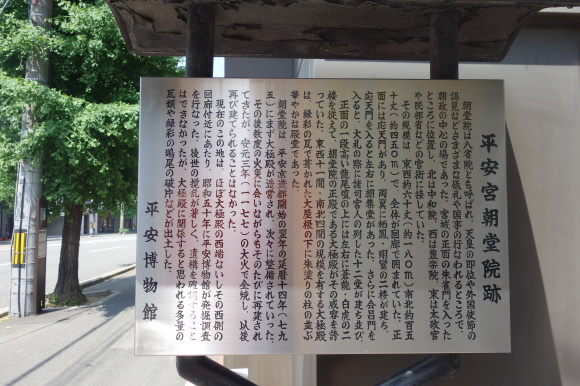 平安宮朝堂院跡
朝堂院は八省院とも呼ばれ、天皇の即位や外国使節の
謁見などさまざまな儀礼や国事の行なわれるところで、
朝政の中心の場であった。宮城の正面の朱雀門を入った
ところに位置し、北は中和院、西は豊楽院、東は太政官
や民部省などの官衙に接していた。
その規模は、東西約六十丈(約一八〇m)南北約百五
十丈(約四五〇m)で、全体が回廊で囲まれていた。正
面には応天門があり、両翼に栖鳳・翔鸞の二楼が建ち、
応天門を入ると左右に朝集堂があった。さらに会昌門を
入ると、大礼の際に諸司官人の列した十二堂が建ち並び、
正面の一段高い龍尾壇の上には左右に蒼龍・白虎の二
楼を従えて、朝堂院の正殿である大極殿がその威容を誇
っていた。東西十一間・南北四間の規模を有する大極殿
は、緑彩の瓦で葺かれた大屋根の下に朱塗りの柱の並ぶ
華やかな殿堂であった。
朝堂院は、平安京造都開始の翌年の延暦十四年(七九
五)にまず大極殿が造営され、次々に整備されていった。
その後数度の火災に会いながらもそのたびに再建され
てきたが、安元三年(一一七七)の大火で全焼し、以後
再び建てられることはなかった。
現在のこの地は、ほぼ大極殿の西端ないしその西側の
回廊付近にあたり、昭和五十年に平安博物館が発掘調査
を行なった。後世の攪乱が著しく、遺構を確認すること
はできなかったが、大極殿に関係すると思われる多量の
瓦類や緑彩の鴟尾の破片などが出土した。
平安博物館